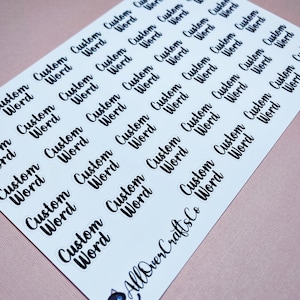 Custom Word Custom Word Custom Word Custom Word Custom Word
Custom Word Custom Word Custom Word Custom Word Custom Word
Custom Word Custom Word Custom Word Custom Word Custom Word
Custom Word Custom Word Custom Word Custom Word Custom Word
Custom Word Custom Word Custom Word Custom Word Custom Word
Custom Word Custom Word Custom Word
AllOverCraftsCo